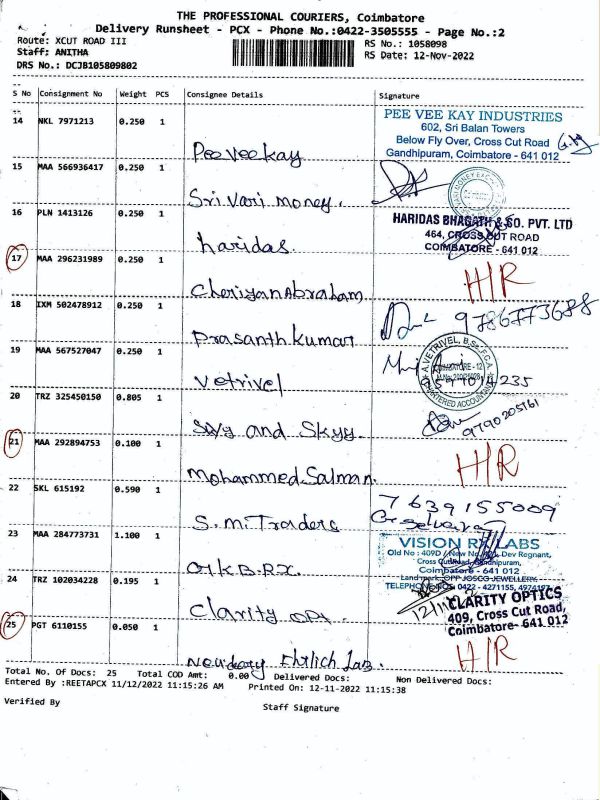 THE PROFESSIONAL COURIERS, Coimbatore
Delivery Runsheet - PCX - Phone No.:0422-3505555 - Page No.:2
Route: XCUT ROAD III
RS No.: 1058098
Staff: ANITHA
RS Date: 12-Nov-2022
DRS No.: DCJB105809802
S No Consignment No Weight PCS Consignee Details Signature
14 NKL 7971213 0.250 1
Pee Vee kay
PEE VEE KAY INDUSTRIES
602, Sri Balan Towers
Below Fly Over, Cross Cut Road
Gandhipuram, Coimbatore - 641 012
15 MAA 566936417 0.250 1
Sri Vari money.
16 PLN 1413126 0.250 1
haridas
HARIDAS BHAGATH & CO. PVT. LTD
464, CROSS CUT ROAD
COIMBATORE - 641 012
17 MAA 296231989 0.250 1
Cheriyan Abraham
H/R
18 IXM 502478912 0.250 1
Prasanth kumar
9786773688
19 MAA 567527047 0.250 1
Vetrivel
A.VETRIVEL, B.Sc., F.C.A.
COIMBATORE - 12
CHARTERED ACCOUNTANT
20 TRZ 325450150 0.805 1
and Skyy
9790205161
21 MAA 292894753 0.100 1
Mohammed Salman.
H/R
22 SKL 615192 0.590 1
S.m. Traders
7639155009
23 MAA 284773731 1.100 1
VISION RX LABS
Old No : 409D / New No. Dev Regnant,
Cross Cut Road, Gandhipuram,
Coimbatore - 641 012
Land mark: OPP JOSCO JEWELLERY
TELEPHONE NOS: 0422 - 4271155, 4976197
24 TRZ 102034228 0.195 1
Clarity opt.
CLARITY OPTICS
409, Cross Cut Road,
Coimbatore- 641 012
25 PGT 6110155 0.050 1
Ehrlich Lab.
H/R
Total No. Of Docs: 25 Total COD Amt: 0.00 Delivered Docs: Non Delivered Docs:
Entered By :REETAPCX 11/12/2022 11:15:26 AM Printed On: 12-11-2022 11:15:38
Verified By Staff Signature